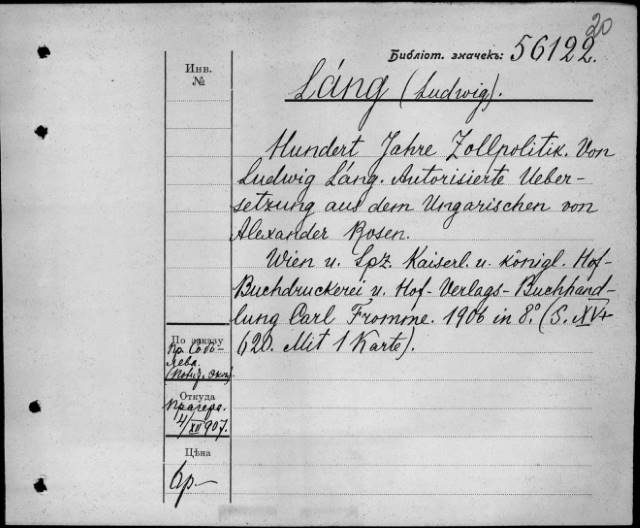 20
Библіот. значекъ: 56122.
Инв.
№
Láng (Ludwig).
Hundert Jahre Zollpolitik. Von
Ludwig Láng. Autorisierte Ueber-
setzung aus dem Ungarischen von
Alexander Rosen.
Wien u. Lpz. Kaiserl. u. königl. Hof-
Buchdruckerei u. Hof-Verlags-Buchhand-
lung Carl Fromme. 1906 in 8.º (S. XV+
620. Mit 1 Karte).
По заказу
Пр. Собо-
лева.
Откуда
Прагера.
4/XII 907.
Цѣна
6р.—